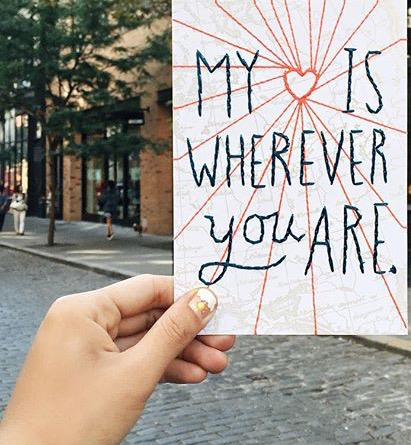 MY ♡ IS
WHEREVER
you ARE.